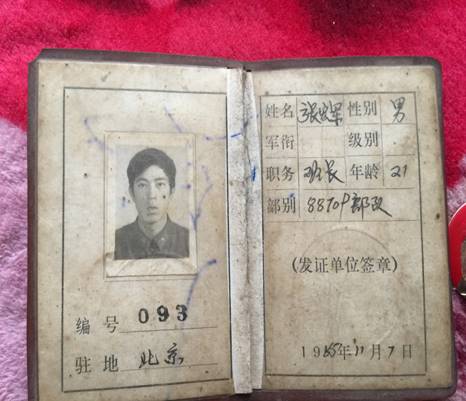 编号 093
驻地 北京
姓名 张 性别 男
军衔 级别
职务 班长 年龄 21
部别 部队
(发证单位签章)
19 年11月7日